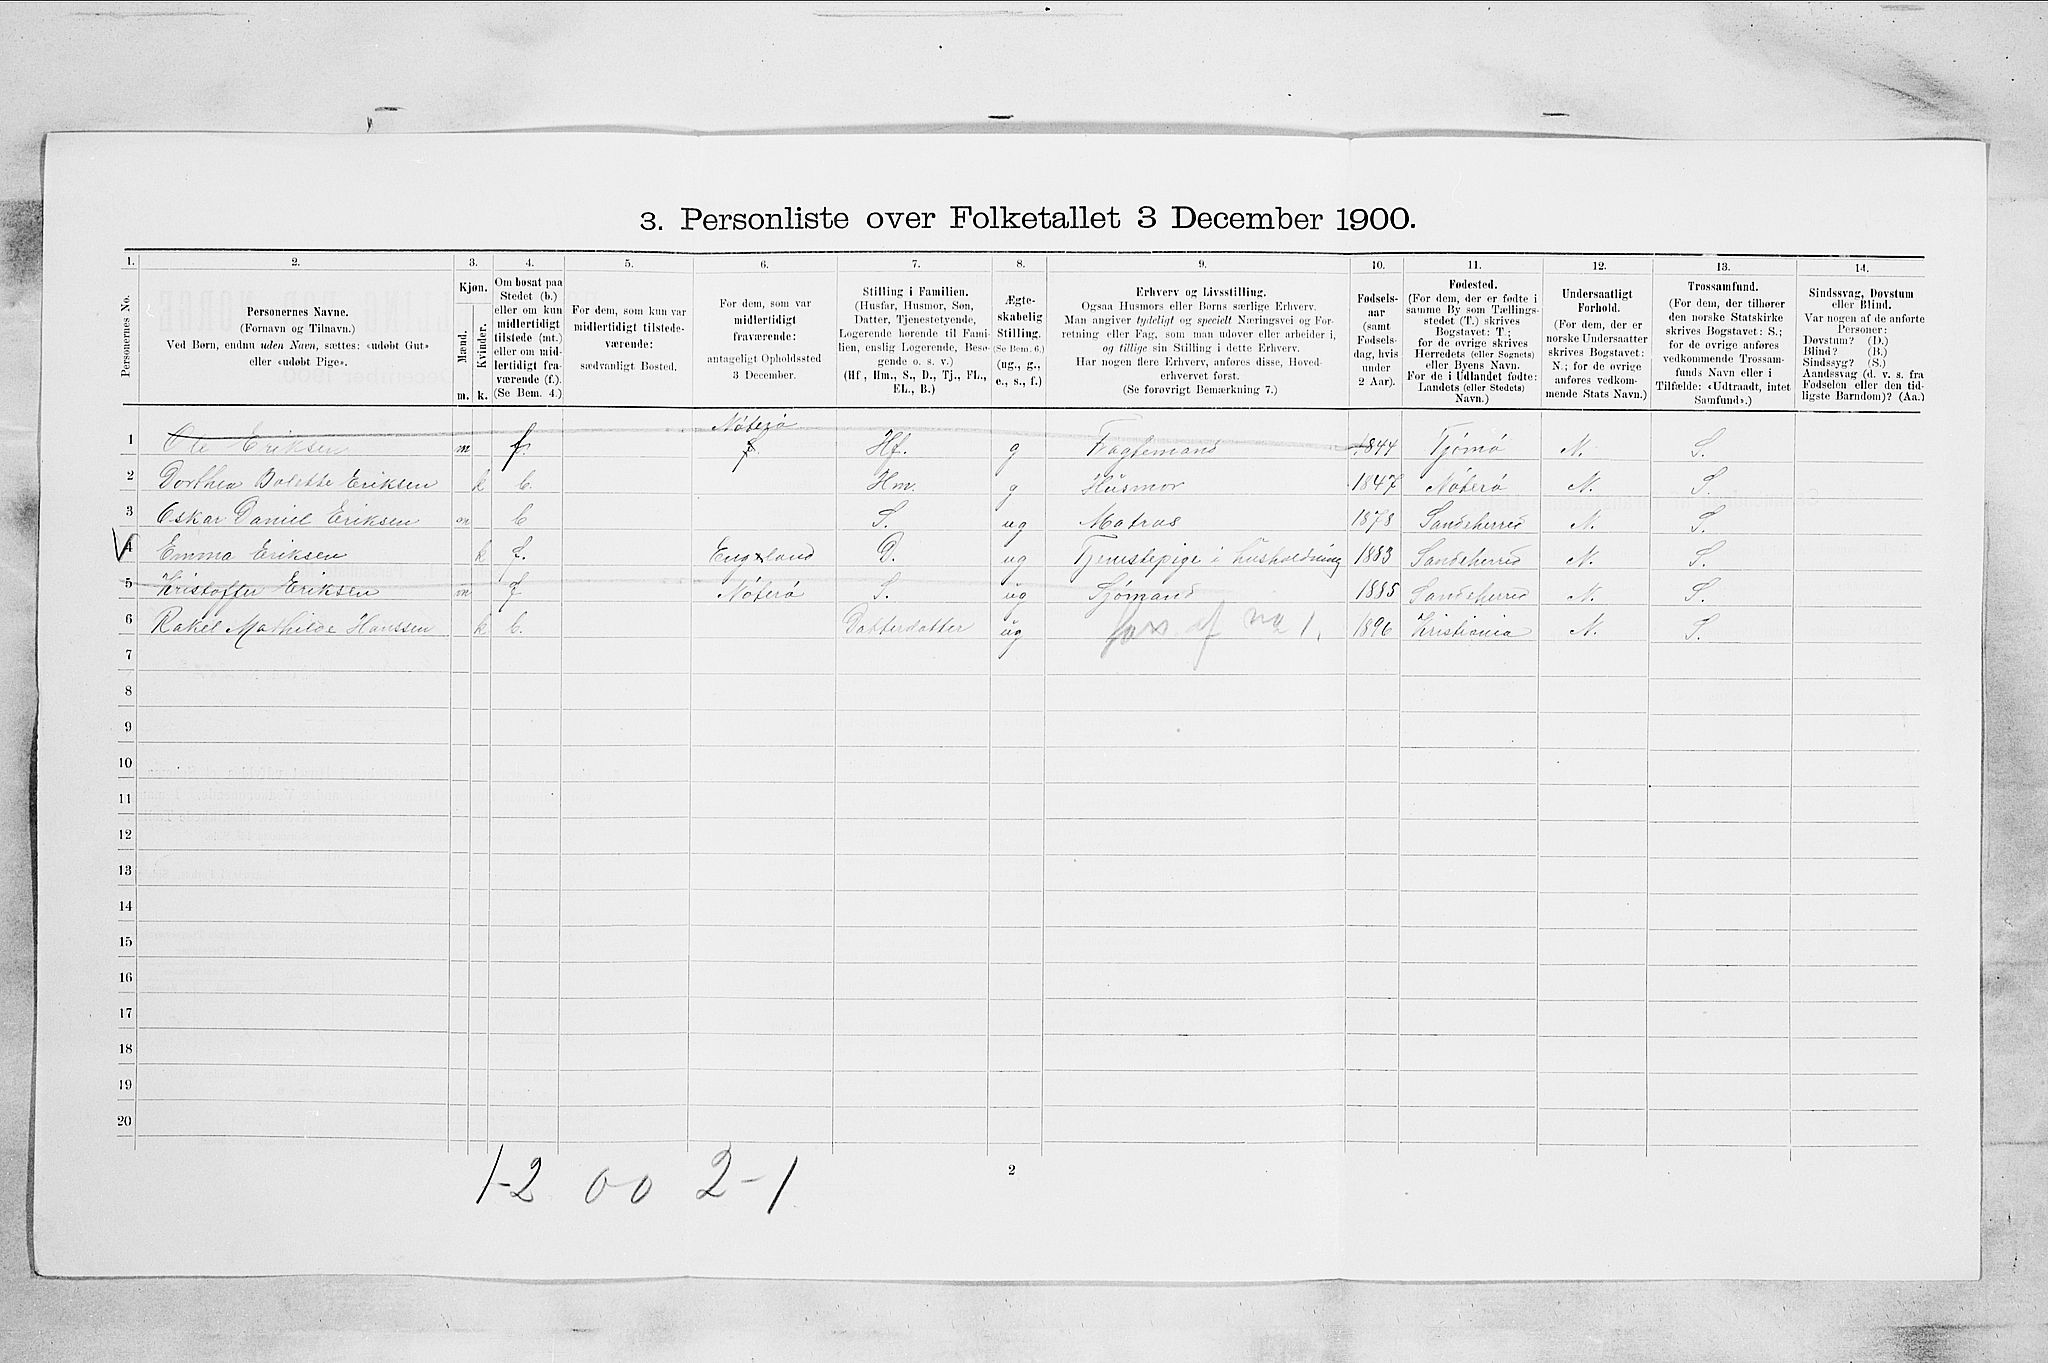 3. Personliste over Folketallet 3 December 1900.
1. 2. 3. 4. 5. 6. 7. 8. 9. 10. 11. 12. 13. 14.
Personernes No.
Personernes Navne.
(Fornavn og Tilnavn.)
Ved Børn, endnu uden Navn, sættes: «udøbt Gut»
eller «udøbt Pige».
Kjøn.
Mænd.
Kvinder.
m. k.
Om bosat paa
Stedet (b.)
eller om kun
midlertidigt
tilstede (mt.)
eller om mid-
lertidigt fra-
værende (f.).
(Se Bem. 4.)
For dem, som kun var
midlertidigt tilstede-
værende:
sædvanligt Bosted.
For dem, som var
midlertidigt
fraværende:
antageligt Opholdssted
3 December.
Stilling i Familien.
(Husfar, Husmor, Søn,
Datter, Tjenestetyende,
Logerende hørende til Fami-
lien, enslig Logerende, Besø-
gende o. s. v.)
(Hf., Hm., S., D., Tj., FL.,
EL., B.)
Ægte-
skabelig
Stilling.
(Se Bem. 6.)
(ug., g.,
e., s., f.)
Erhverv og Livsstilling.
Ogsaa Husmors eller Børns særlige Erhverv.
Man angiver tydeligt og specielt Næringsvei og For-
retning eller Fag, som man udøver eller arbeider i,
og tillige sin Stilling i dette Erhverv.
Har nogen flere Erhverv, anføres disse, Hoved-
erhvervet først.
(Se forøvrigt Bemærkning 7.)
Fødsels-
aar
(samt
Fødsels-
dag, hvis
under
2 Aar).
Fødested.
(For dem, der er fødte i
samme By som Tællings-
stedet (T.) skrives
Bogstavet: T.;
for de øvrige skrives
Herredets (eller Sognets)
eller Byens Navn.
For de i Udlandet fødte:
Landets (eller Stedets)
Navn.)
Undersaatligt
Forhold.
(For dem, der er
norske Undersaatter
skrives Bogstavet:
N.; for de øvrige
anføres vedkom-
mende Stats Navn.)
Trossamfund.
(For dem, der tilhører
den norske Statskirke
skrives Bogstavet: S.;
for de øvrige anføres
vedkommende Trossam-
funds Navn eller i
Tilfælde: «Udtraadt, intet
Samfund».)
Sindssvag, Døvstum
eller Blind.
Var nogen af de anførte
Personer:
Døvstum? (D.)
Blind? (B.)
Sindssyg? (S.)
Aandssvag (d. v. s. fra
Fødselen eller den tid-
ligste Barndom)? (Aa.)
Nøterø
1 Ole Eriksen m f. Hf. g Fragtemand 1844 Tjømø N. S.
2 Dorthea Bolette Eriksen k b. Hm. g Husmor 1847 Nøterø N. S.
3 Oskar Daniel Eriksen m b S. ug Matros 1878 Sandeherred N. S.
4 Emma Eriksen k f. England D. ug Tjenestepige i husholdning 1883 Sandeherred N. S.
5 Kristoffer Eriksen m f Nøterø S. ug Sjømand 1885 Sandeherred N. S.
6 Rakel Mathilde Hanssen k b. Datterdatter ug fors. af no 1. 1896 Kristiania N. S.
7
8
9
10
11
12
13
14
15
16
17
18
19
20
1-2 0-0 2-1
2